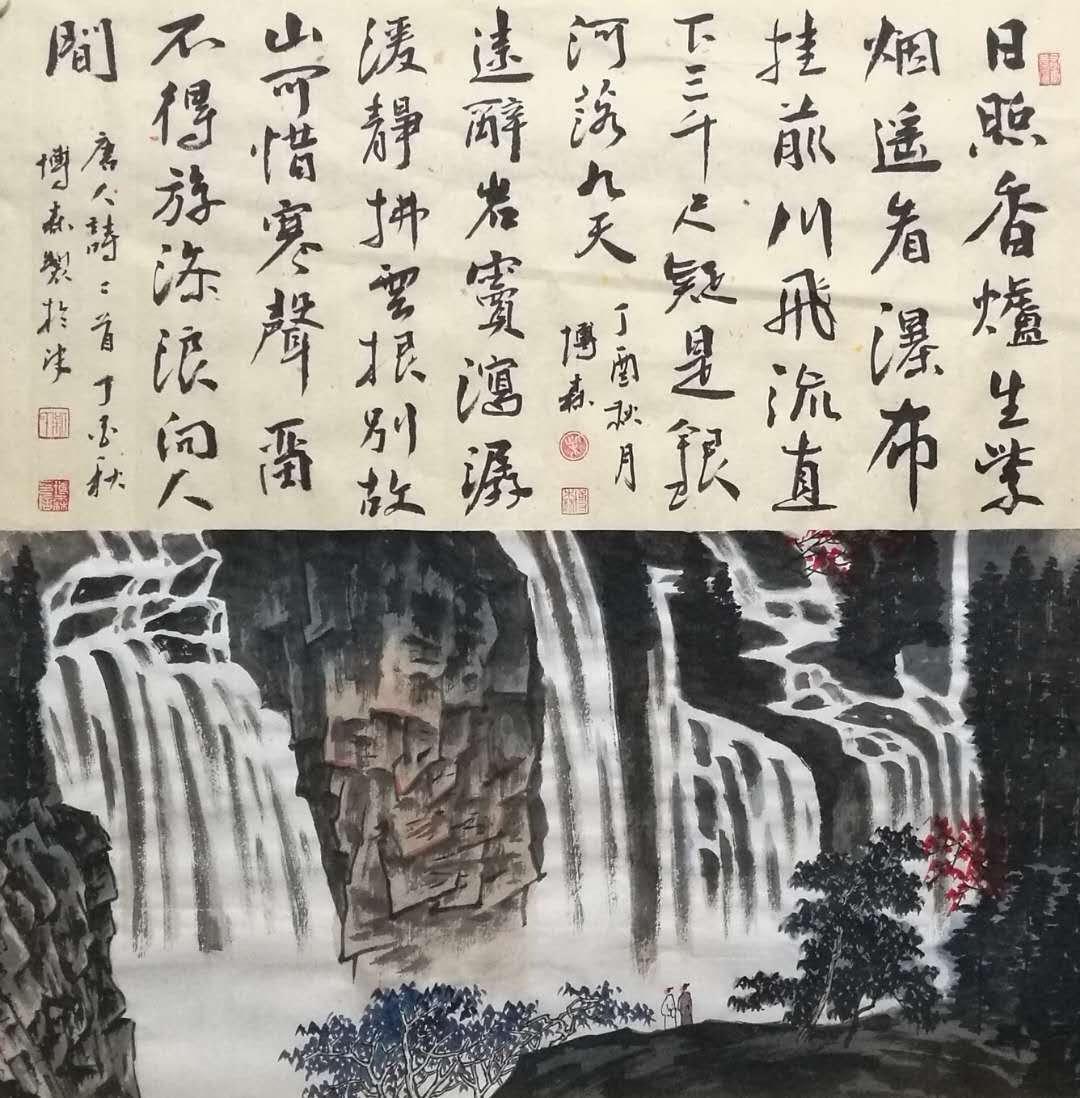 日照香爐生紫
烟遥看瀑布
挂前川飛流直
下三千尺疑是銀
河落九天
丁酉秋月
博森
遠辭岩竇瀉潺
湲靜拂雲根别故
山可惜寒聲留
不得旋添浪向人
間
唐人詩二首丁酉秋
博森製於津